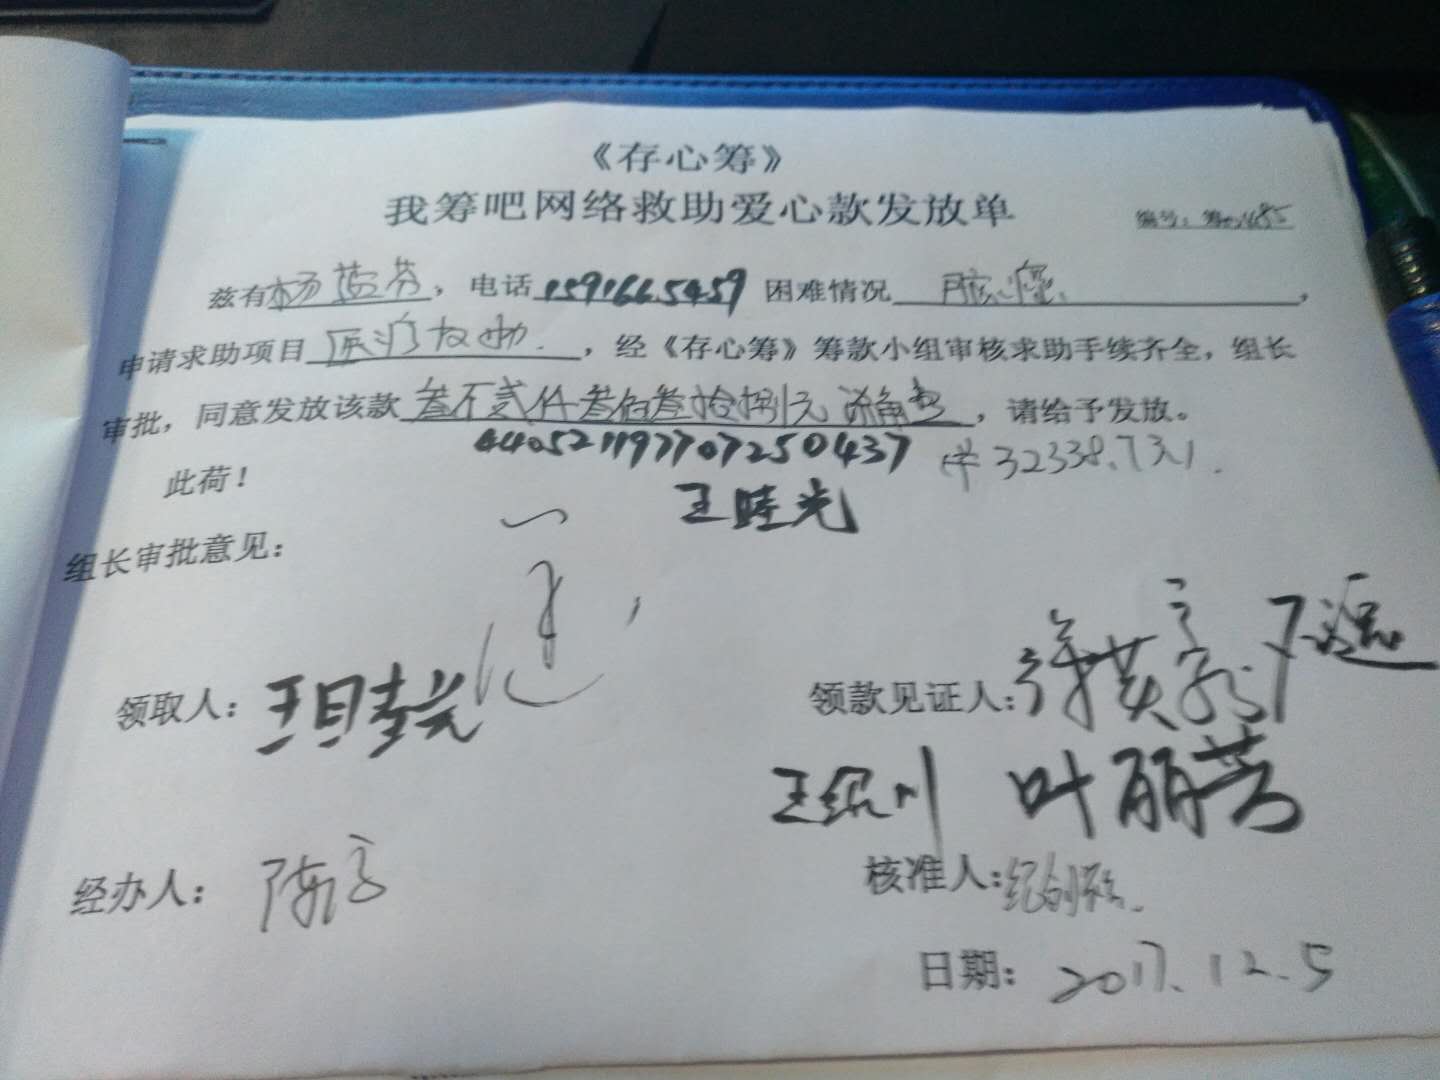 《存心筹》
我筹吧网络救助爱心款发放单
编号：筹
兹有杨 芬，电话15916665459 困难情况
申请求助项目医疗救助，经《存心筹》筹款小组审核求助手续齐全，组长
审批，同意发放该款叁万贰仟叁佰叁拾捌元 柒角叁，请给予发放。
440521197707250437 32338.73
此荷！ 王 光
组长审批意见：
领取人： 光 领款见证人：
王绍川 叶丽芳
经办人：陈 核准人：纪
日期：2017.12.5